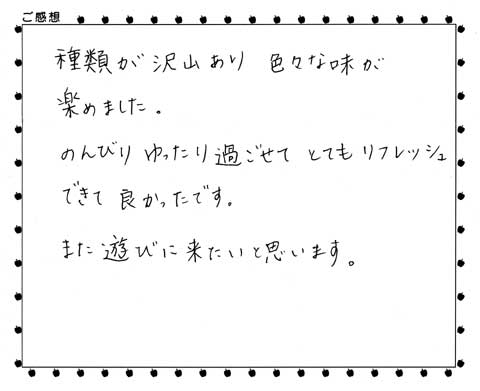 ご感想
種類が沢山あり 色々な味が
楽めました。
のんびり ゆったり過ごせて とても リフレッシュ
できて 良かったです。
また遊びに来たいと思います。